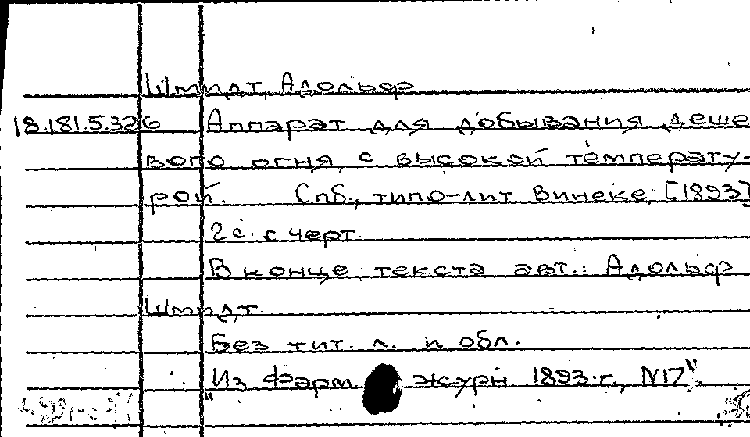 Шмидт, Адольф
18.181.5.326 Аппарат для добывания деше
вого огня с высокой температу-
рой. Спб., типо-лит Винеке, [1893]
2 с. с черт.
В конце текста авт.: Адольф
Шмидт.
Без тит. л. и обл.
"Из Фарм журн 1893 г., N17".